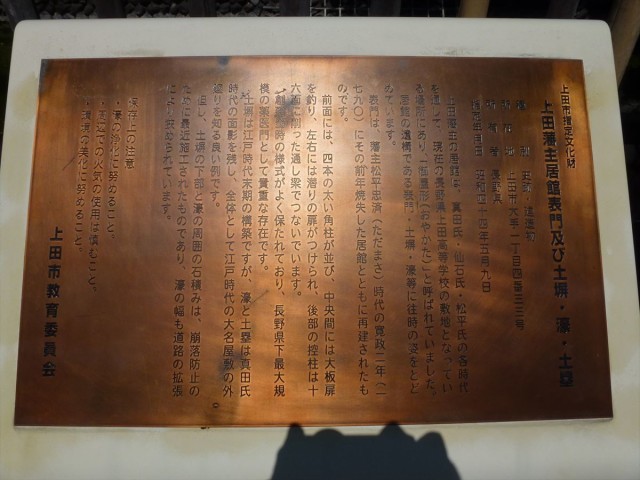 上田市指定文化財
上田藩主居館表門及び土塀・濠・土塁
種別 史跡・建造物
所在地 上田市大手一丁目四番三二号
所有者 長野県
指定年月日 昭和四十四年五月九日
上田藩主の居館は、真田氏・仙石氏・松平氏の各時代
を通して、現在の長野県上田高等学校の敷地となってい
る場所にあり、「御屋形（おやかた）」と呼ばれていました。
居館の遺構である表門・土塀・濠等に往時の姿をとど
めています。
表門は、藩主松平忠済（ただまさ）時代の寛政二年（一
七九〇）にその前年焼失した居館とともに再建されたも
のです。
前面には、四本の太い角柱が並び、中央間には大板扉
を釣り、左右には潜りの扉がつけられ、後部の控柱は十
六面に削った通し梁でつないでいます。
創建当時の様式がよく保たれており、長野県下最大規
模の薬医門として貴重な存在です。
土塀は江戸時代末期の構築ですが、濠と土塁は真田氏
時代の面影を残し、全体として江戸時代の大名屋敷の外
廻りを知る良い例です。
但し、土塀の下部と濠の周囲の石積みは、崩落防止の
ために最近施工されたものであり、濠の幅も道路の拡張
により狭められています。
保存上の注意
・濠の浄化に努めること。
・周辺での火気の使用は慎むこと。
・環境の美化に努めること。
上田市教育委員会